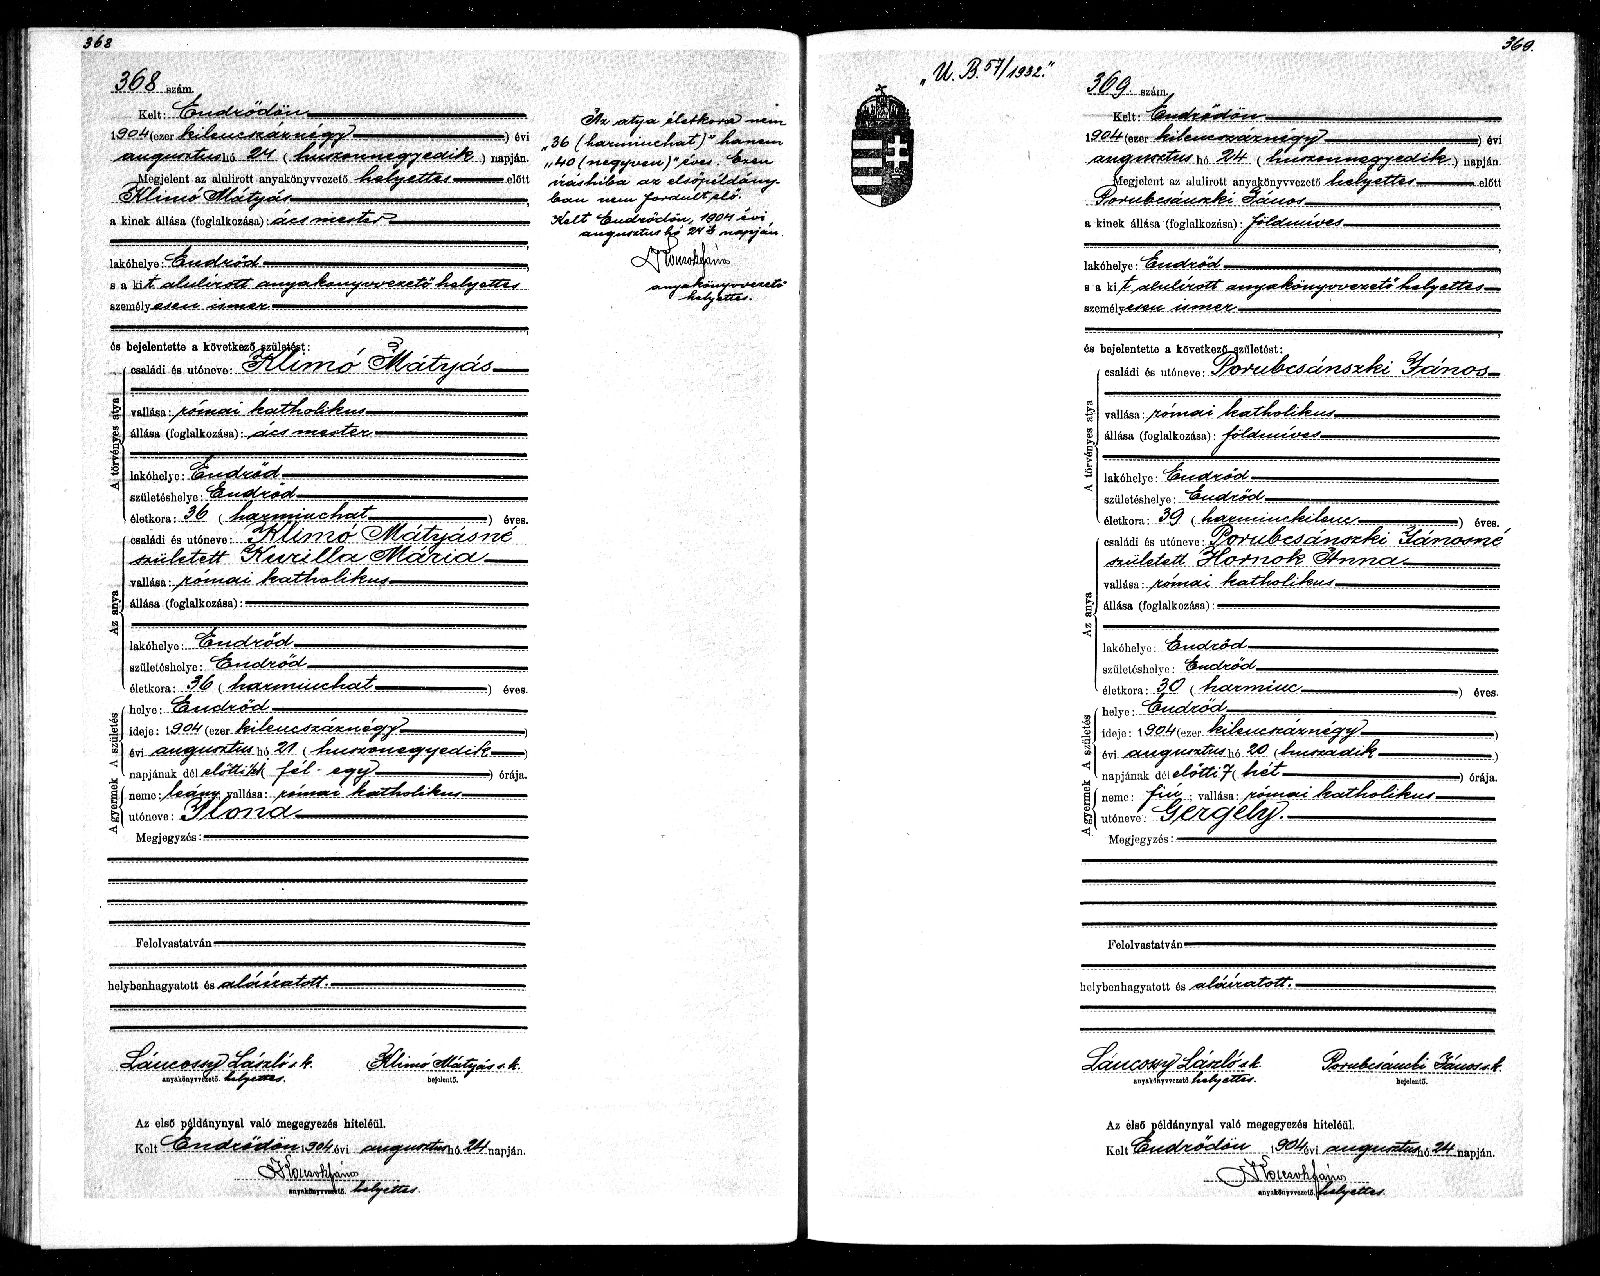 368
368 szám.
Kelt: Endrődön
1904 (ezer kilenczáznégy) évi
augusztus hó 24 (huszonnegyedik) napján.
Megjelent az alulirott anyakönyvvezető helyettes előtt
Klimó Mátyás
a kinek állása (foglalkozása): ácsmester
lakóhelye: Endrőd
s a kit alulirott anyakönyvvezető helyettes
személyesen ismer
és bejelentette a következő születést:
A törvényes atya
családi és utóneve: Klimó Mátyás
vallása: római katholikus
állása (foglalkozása): ácsmester
lakóhelye: Endrőd
születéshelye: Endrőd
életkora: 36 (harminchat) éves.
Az anya
családi és utóneve: Klimó Mátyásné
született Kurilla Mária
vallása: római katholikus
állása (foglalkozása):
lakóhelye: Endrőd
születéshelye: Endrőd
életkora: 36 (harminchat) éves.
A születés
helye: Endrőd
ideje: 1904 (ezer kilencszáznégy)
évi augusztus hó 21 (huszonegyedik)
napjának dél előtti ½1 (fél-egy) órája.
A gyermek
neme: leány; vallása: római katholikus
utóneve: Ilona
Megjegyzés:
Felolvastatván
helybenhagyatott és aláíratott.
Láncossy László s. k. Klimó Mátyás s. k.
anyakönyvvezető. helyettes. bejelentő.
Az első példánynyal való megegyezés hiteléül.
Kelt Endrődön 1904 évi augusztus hó 24 napján.
Kocsok János
anyakönyvvezető. helyettes.
Az atya életkora nem
„36 (harminchat)" hanem
„40 (negyven)" éves. Ezen
íráshiba az elsőpéldány-
ban nem fordult elő.
Kelt Endrődön, 1904 évi
augusztus hó 24 napján.
Kocsok János
anyakönyvvezető
helyettes.
369.
„U. B. 57/1932."
369 szám.
Kelt: Endrődön
1904 (ezer kilencszáznégy) évi
augusztus hó 24 (huszonnegyedik) napján.
Megjelent az alulirott anyakönyvvezető helyettes előtt
Porubcsánszki János
a kinek állása (foglalkozása): földmíves
lakóhelye: Endrőd
s a kit alulírott anyakönyvvezető helyettes
személyesen ismer
és bejelentette a következő születést:
A törvényes atya
családi és utóneve: Porubcsánszki János
vallása: római katholikus
állása (foglalkozása): földmíves
lakóhelye: Endrőd
születéshelye: Endrőd
életkora: 39 (harminckilenc) éves.
Az anya
családi és utóneve: Porubcsánszki Jánosné
született Hornok Anna
vallása: római katholikus
állása (foglalkozása):
lakóhelye: Endrőd
születéshelye: Endrőd
életkora: 30 (harminc) éves.
A születés
helye: Endrőd
ideje: 1904 (ezer kilencszáznégy)
évi augusztus hó 20 (huszadik)
napjának dél előtti 7 (hét) órája.
A gyermek
neme: fiú; vallása: római katholikus
utóneve: Gergely.
Megjegyzés:
Felolvastatván
helybenhagyatott és aláíratott.
Láncossy László s. k. Porubcsánszki János s. k.
anyakönyvvezető helyettes. bejelentő.
Az első példánynyal való megegyezés hiteléül.
Kelt Endrődön 1904 évi augusztus hó 24 napján.
Kocsok János
anyakönyvvezető. helyettes.